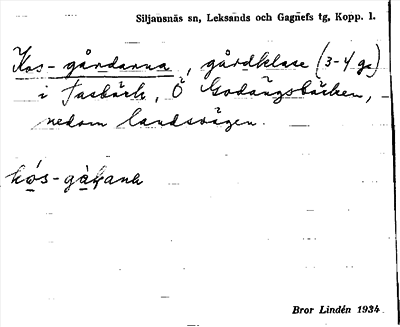 Siljansnäs sn, Leksands och Gagnefs tg, Kopp. l.
Kos-gårdarna, gårdklase (3-4 gr)
i Tasbäck, Ö Godängsbäcken,
nedom landsvägen.
Bror Lindén 1934.